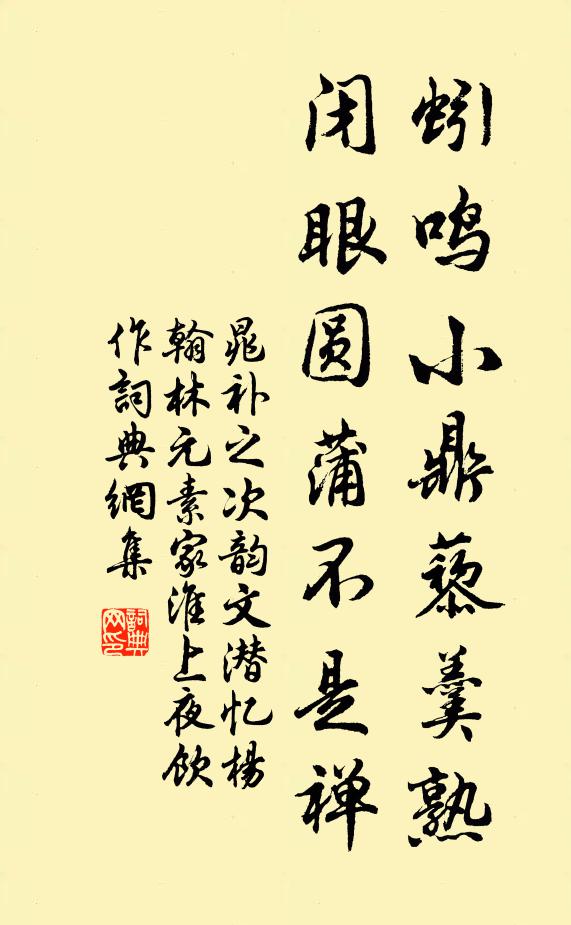 蚓鸣小鼎藜羹熟
闭眼圆蒲不是禅
晁补之次韵文潜忆杨
翰林元素家淮上夜饮
作詞典網集
詞典
网印